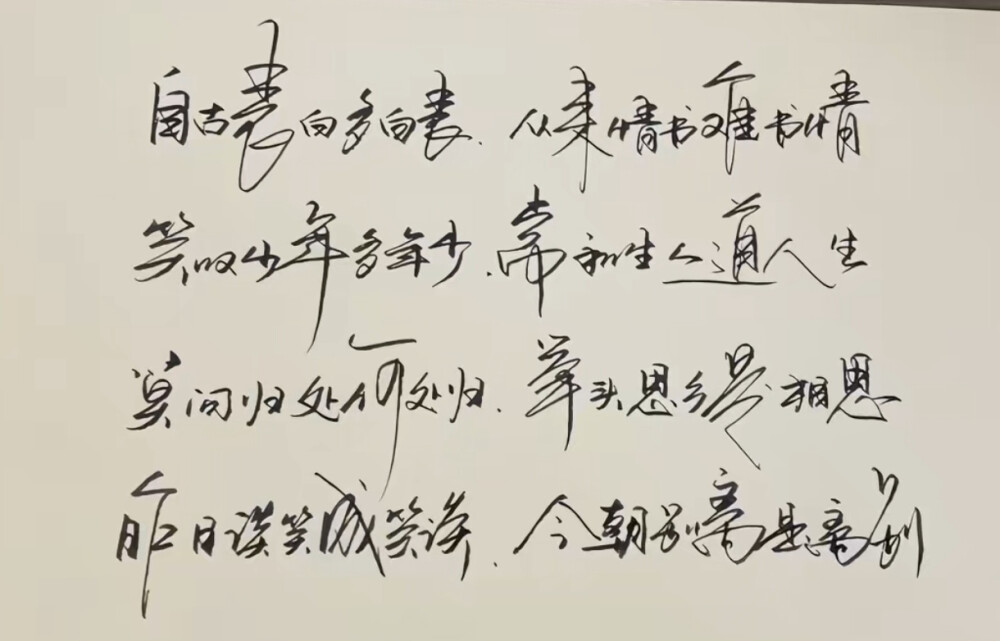 自古表白多白表.从来情书难书情
笑叹少年多年少.常和生人道人生
莫问归处何处归.举头思乡是相思
昨日谈笑成笑谈.今朝别离是离别